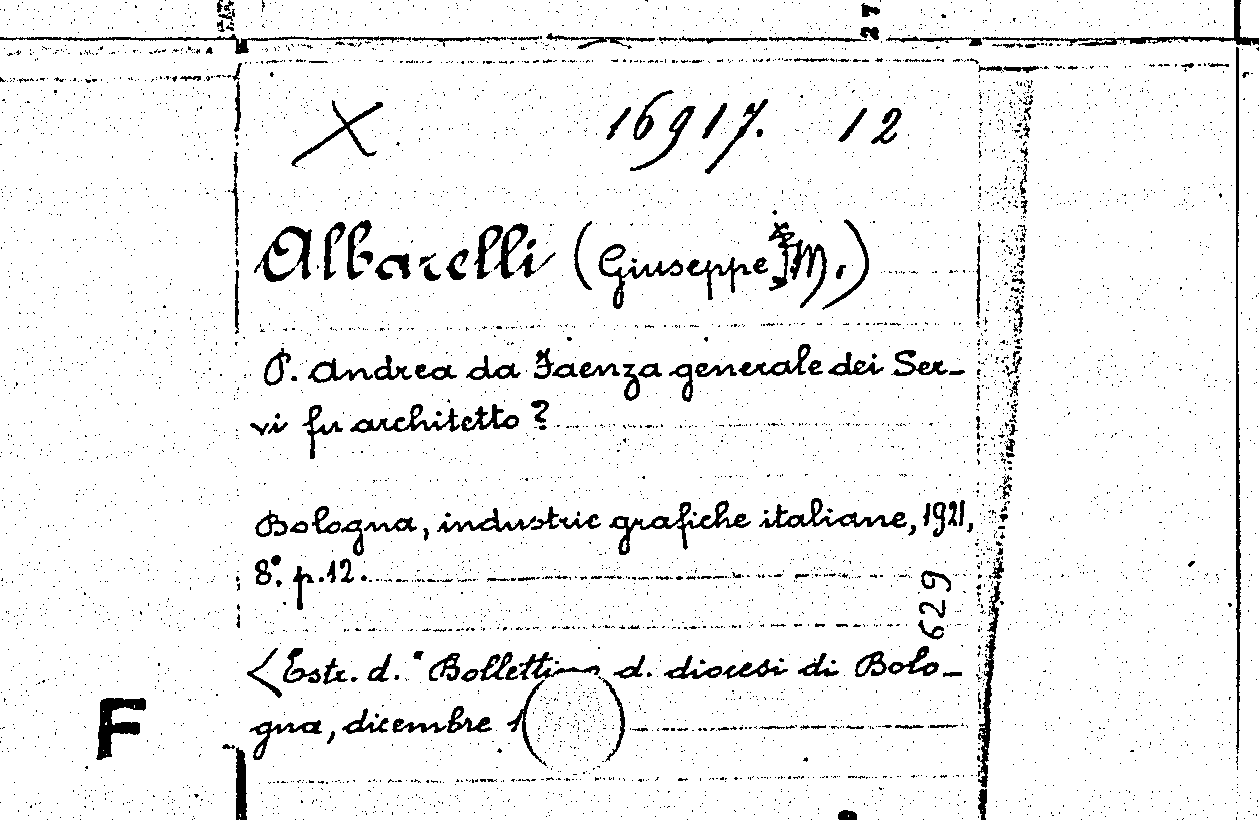 27
X 16917. 12
Albarelli (Giuseppe M.)
P. Andrea da Faenza generale dei Ser-
vi fu architetto?
Bologna, industrie grafiche italiane, 1921,
8°. p. 12.
629
(Estr. d. "Bollettino d. diocesi di Bolo-
gna, dicembre 1
F